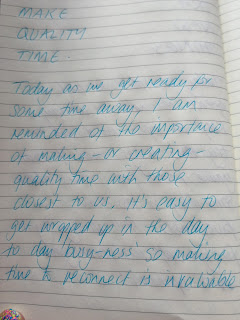 MAKE
QUALITY
TIME.
Today as we get ready for
some time away, I am
reminded of the importance
of making - or creating -
quality time with those
closest to us. It's easy to
get wrapped up in the day
to day 'busy-ness' so making
time to reconnect is invaluable